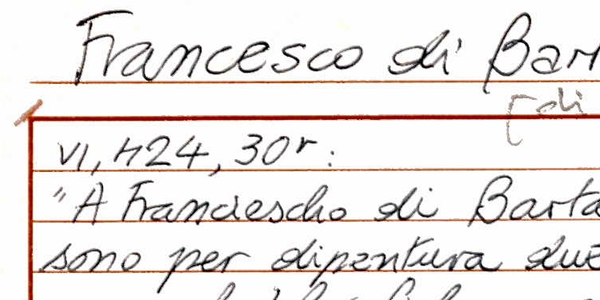 Francesco di Bar
[di
VI, 424, 30r:
"A Franciescho di Barta
sono per dipentura due